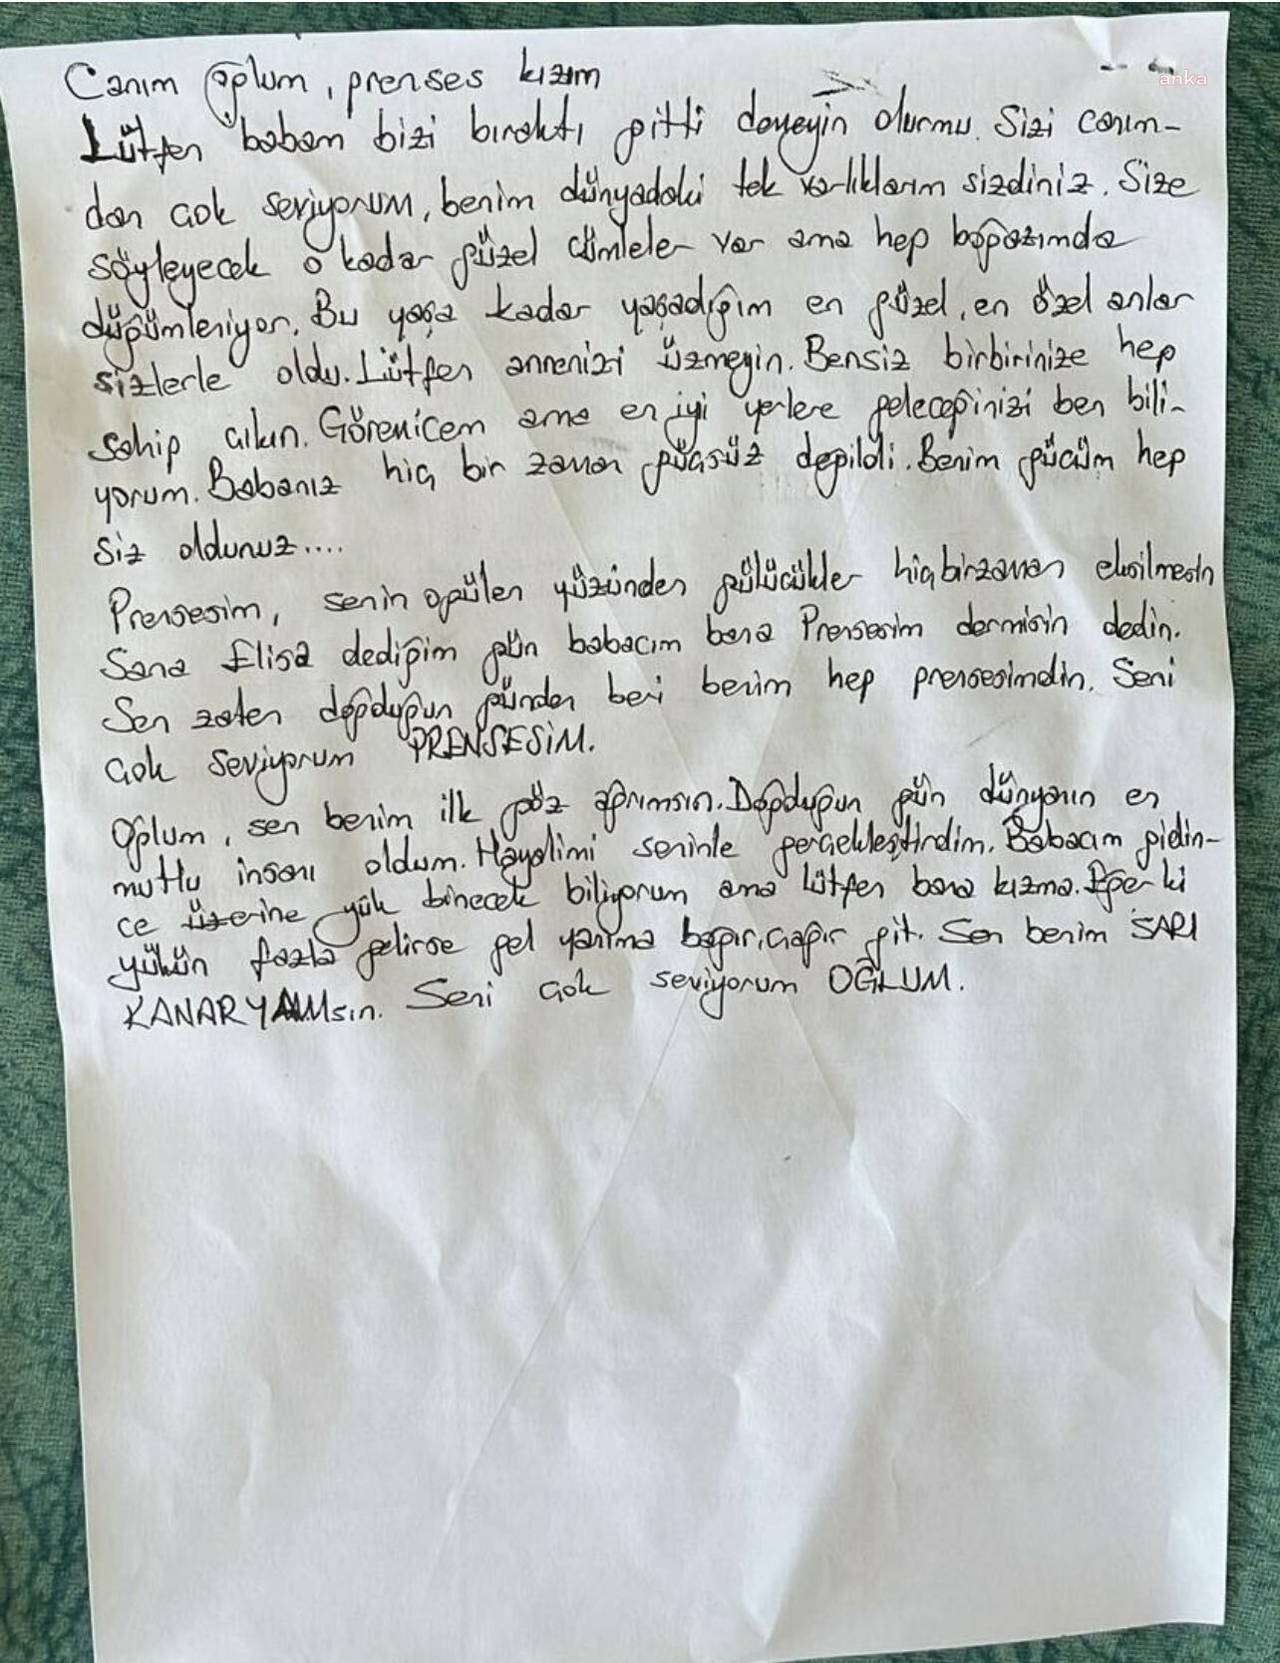 Canım oğlum, prenses kızım
anka
Lütfen babam bizi bıraktı gitti demeyin olurmu. Sizi canım-
dan çok seviyorum, benim dünyadaki tek varlıklarım sizdiniz. Size
söyleyecek o kadar güzel cümleler var ama hep boğazımda
düğümleniyor. Bu yaşa kadar yaşadığım en güzel, en özel anlar
sizlerle oldu. Lütfen annenizi üzmeyin. Bensiz birbirinize hep
sahip çıkın. Göremicem ama en iyi yerlere geleceğinizi ben bili-
yorum. Babanız hiç bir zaman güçsüz değildi. Benim gücüm hep
siz oldunuz....
Prensesim, senin o gülen yüzünden gülücükler hiçbirzaman eksilmesin
Sana Elisa dediğim gün babacım bana Prensesim dermisin dedin.
Sen zaten doğduğun günden beri benim hep prensesimdin. Seni
çok seviyorum PRENSESİM.
Oğlum, sen benim ilk göz ağrımsın. Doğduğun gün dünyanın en
mutlu insanı oldum. Hayalimi seninle gerçekleştirdim. Babacım gidin-
ce üzerine yük binecek biliyorum ama lütfen bana kızma. Eğer ki
yükün fazla gelirse gel yanıma bağır, çağır git. Sen benim SARI
KANARYAMsın. Seni çok seviyorum OĞLUM.